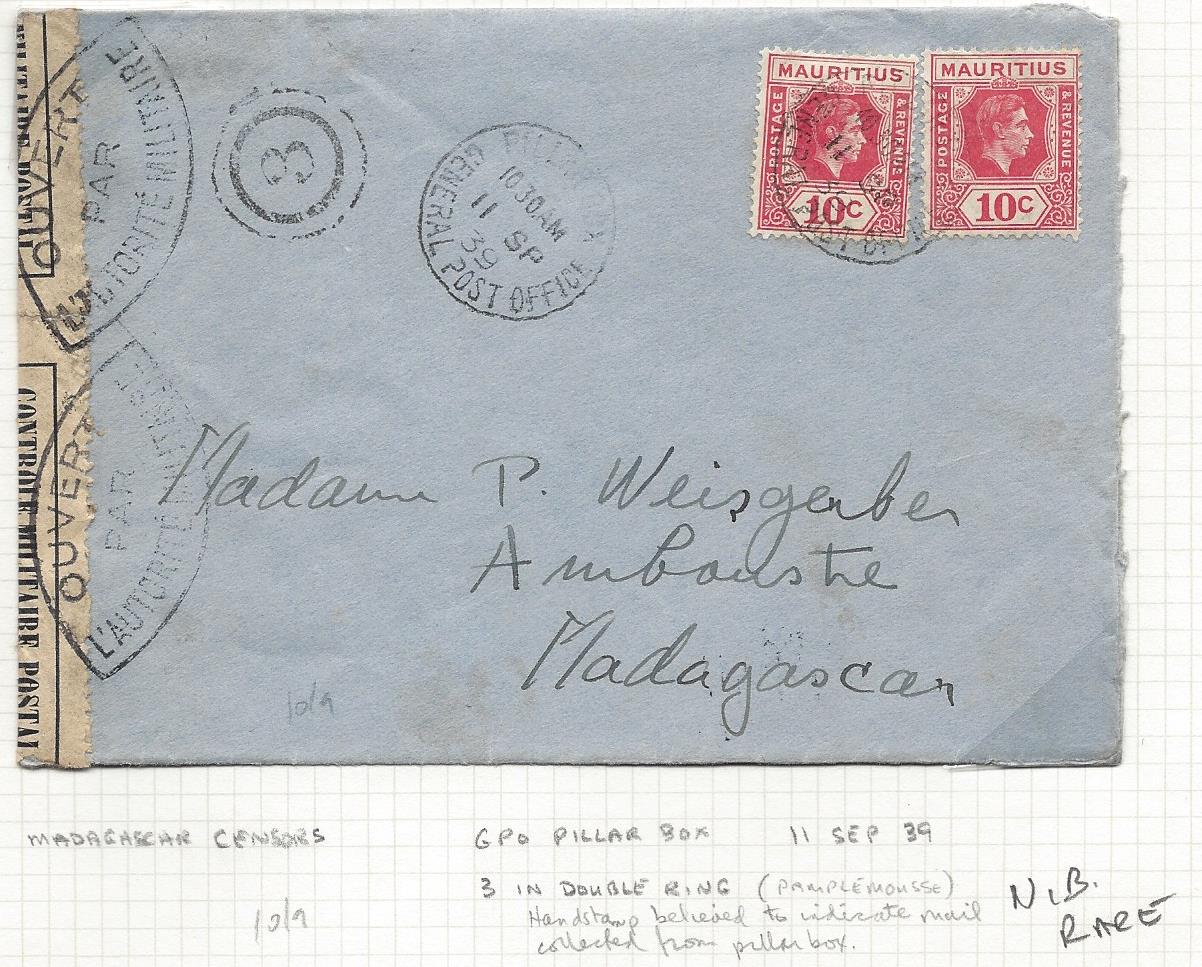 MAURITIUS
POSTAGE
& REVENUE
10C
MAURITIUS
POSTAGE
& REVENUE
10C
OUVERT
PAR
L'AUTORITÉ MILITAIRE
3
10 30 AM
11 SP
39
GENERAL POST OFFICE
OUVERT
PAR
L'AUTORITÉ MILITAIRE
CONTROLE MILITAIRE POSTAL
Madame P. Weisgerber
Amboustre
Madagascar
10/9
MADAGASCAR CENSORS
GPO PILLAR BOX 11 SEP 39
3 IN DOUBLE RING (PAMPLEMOUSSE)
Handstamp believed to indicate mail
collected from pillar box.
10/9
N.B.
RARE